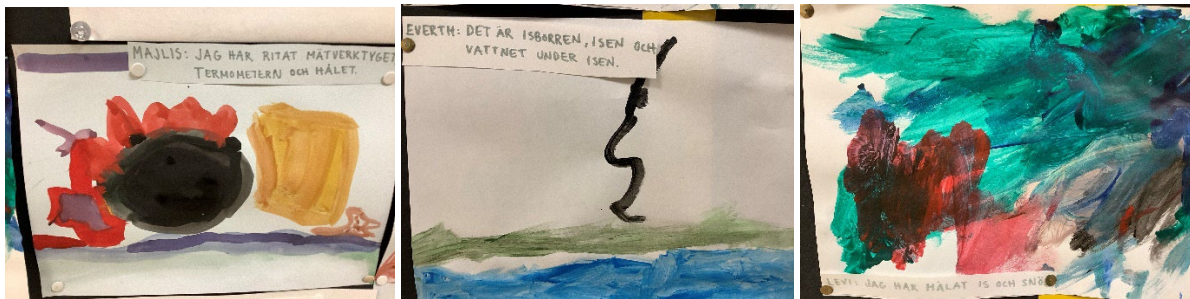 MAJLIS: JAG HAR RITAT MÄTVERKTYGET
TERMOMETERN OCH HÅLET.
EVERTH: DET ÄR ISBORREN, ISEN OCH
VATTNET UNDER ISEN.
LEVI: JAG HAR MÅLAT IS OCH SNÖ